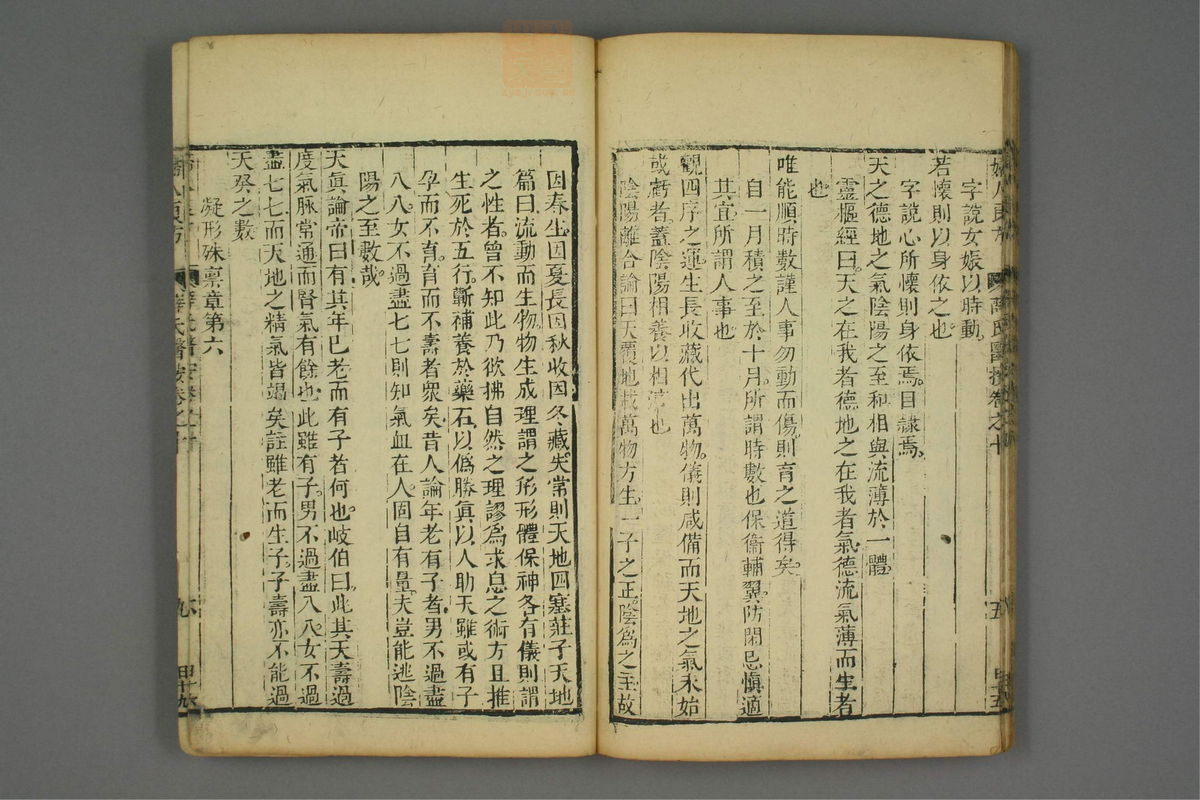 字說女娠以時動
若懷則以身依之也
字說心所懷則身依焉目隷焉
天之德地之氣陰陽之至和相與流薄於一體
靈樞經曰天之在我者德地之在我者氣德流氣薄而生者
也
唯能順時數謹人事勿動而傷則育之道得矣
自一月積之至於十月所謂時數也保衞輔翼防閑忌愼適
其宜所謂人事也
觀四序之運生長收藏代出萬物儀則咸備而天地之氣未始
或虧者蓋陰陽相養以相濟也
陰陽離合論曰天覆地載萬物方生一子之正陰爲之主故
因春生因夏長因秋收因冬藏失常則天地四塞莊子天地
篇曰流動而生物物生成理謂之形形體保神各有儀則謂
之性者曾不知此乃欲拂自然之理謬爲求息之術方且推
生死於五行蘄補養於藥石以僞勝眞以人助天雖或有子
孕而不育育而不壽者衆矣昔人論年老有子者男不過盡
八八女不過盡七七則知氣血在人固自有量夫豈能逃陰
陽之至數哉
天眞論帝曰有其年已老而有子者何也岐伯曰此其天壽過
度氣脉常通而腎氣有餘也此雖有子男不過盡八八女不過
盡七七而天地之精氣皆竭矣註雖老而生子子壽亦不能過
天癸之數
凝形殊禀章第六